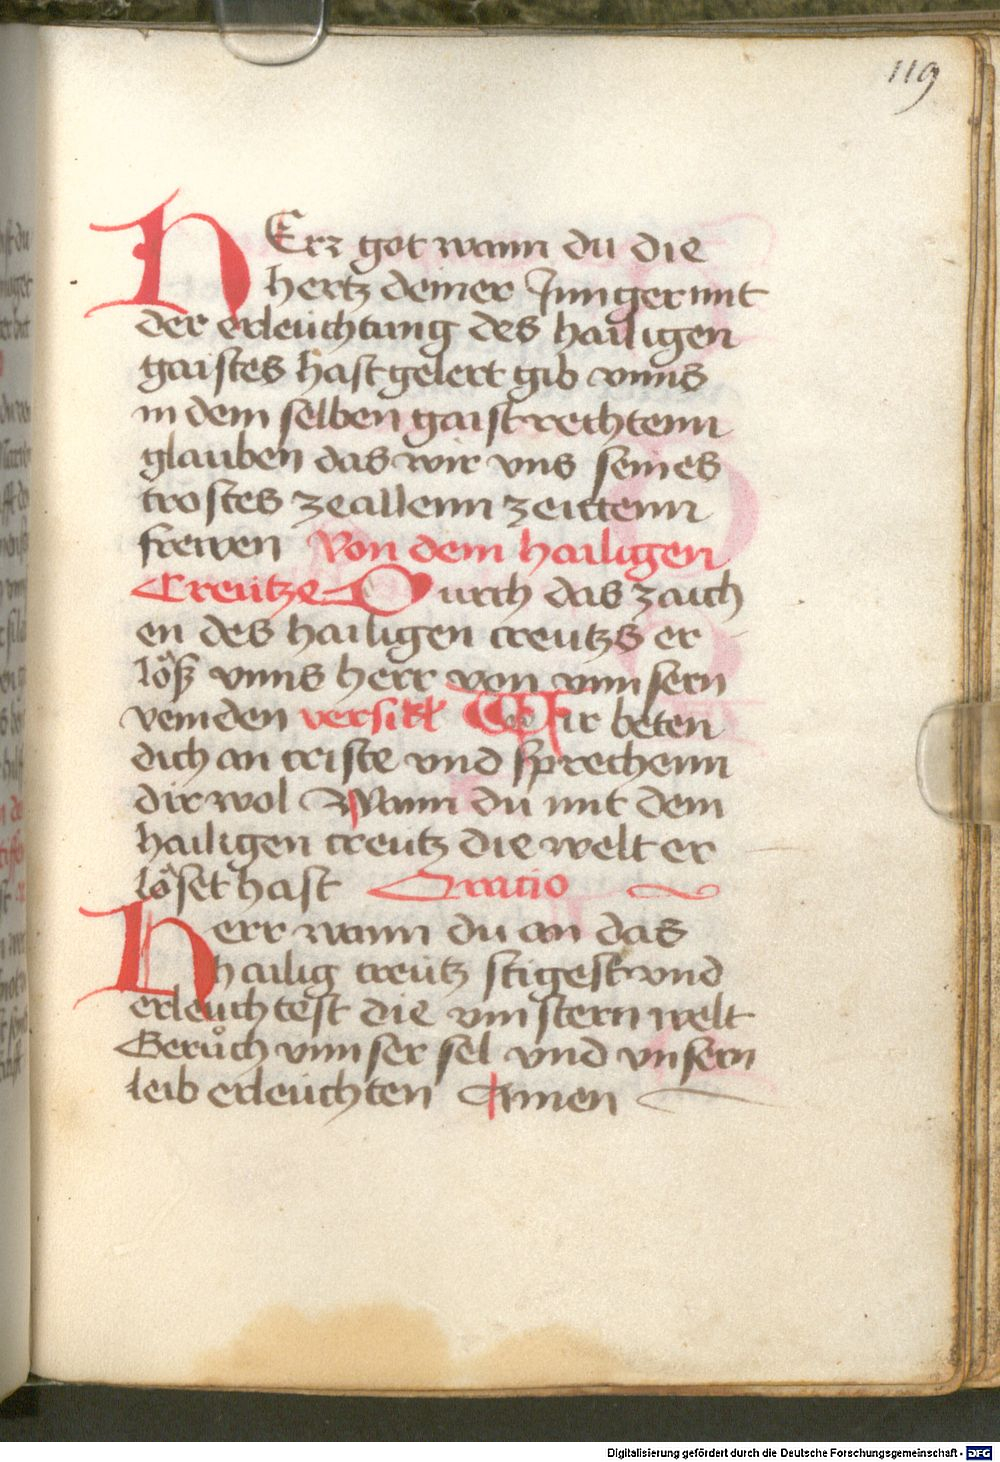 119
HErr got wann du die
hertz deiner Junger mit
der erleuchtung des hailigen
gaistes hast gelert gib vnns
in dem selben gaist rechtenn
glauben das wir vns seines
trostes zeallenn zeittenn
frewen Von dem hailigen
Creutze Durch das zaich
en des hailigen creutzs er
löß vnns herr von vnnsern
veinden versikl Wir beten
dich an criste vnd sprechenn
dir wol Wann du mit dem
hailigen creutz die welt er
löset hast Oratio
herr wann du an das
hailig creutz stigest vnd
erleuchtest die vinstern welt
Gerůch vnnser sel vnd vnsern
leib erleuchten Amen
Digitalisierung gefördert durch die Deutsche Forschungsgemeinschaft - DFG